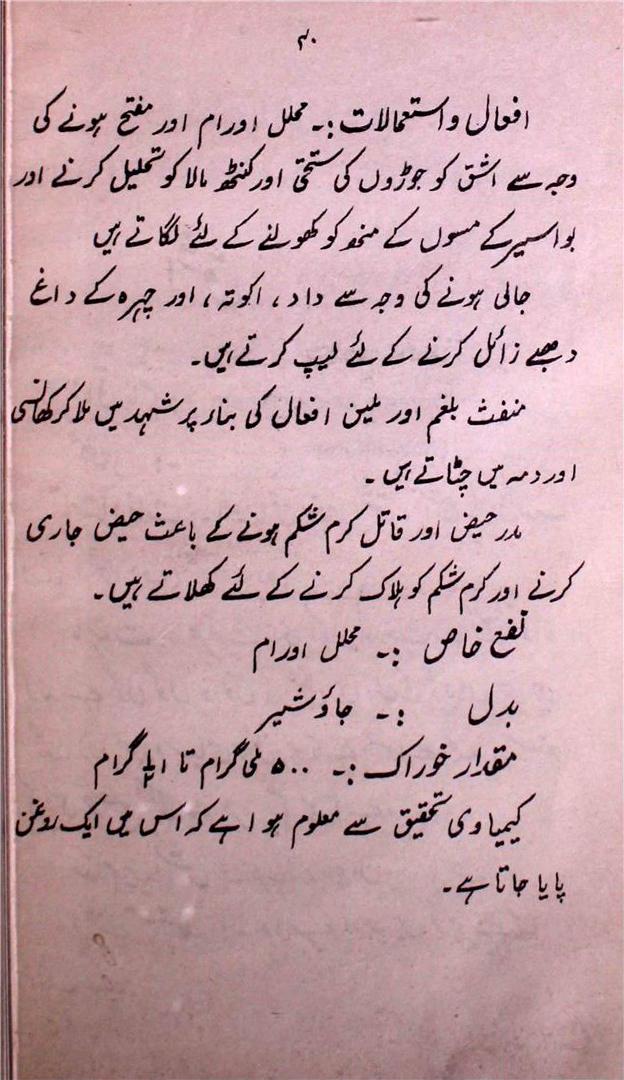 ۴۰
افعال و استعمالات :۔ محلل اورام اور مفتح ہونے کی
وجہ سے اشق کو جوڑوں کی سختی اور کنٹھ مالا کو تحلیل کرنے اور
بواسیر کے مسوں کے منھ کو کھولنے کے لئے لگاتے ہیں
جالی ہونے کی وجہ سے داد، اکوتہ، اور چہرہ کے داغ
دھبے زائل کرنے کے لئے لیپ کرتے ہیں۔
منفث بلغم اور ملین افعال کی بناء پر شہد میں ملا کر کھانسی
اور دمہ میں چٹاتے ہیں۔
مدر حیض اور قاتل کرم شکم ہونے کے باعث حیض جاری
کرنے اور کرم شکم کو ہلاک کرنے کے لئے کھلاتے ہیں۔
نفع خاص :۔ محلل اورام
بدل :۔ جاؤشیر
مقدار خوراک :۔ ۵۰۰ ملی گرام تا ۱½ گرام
کیمیاوی تحقیق سے معلوم ہوا ہے کہ اس میں ایک روغن
پایا جاتا ہے۔